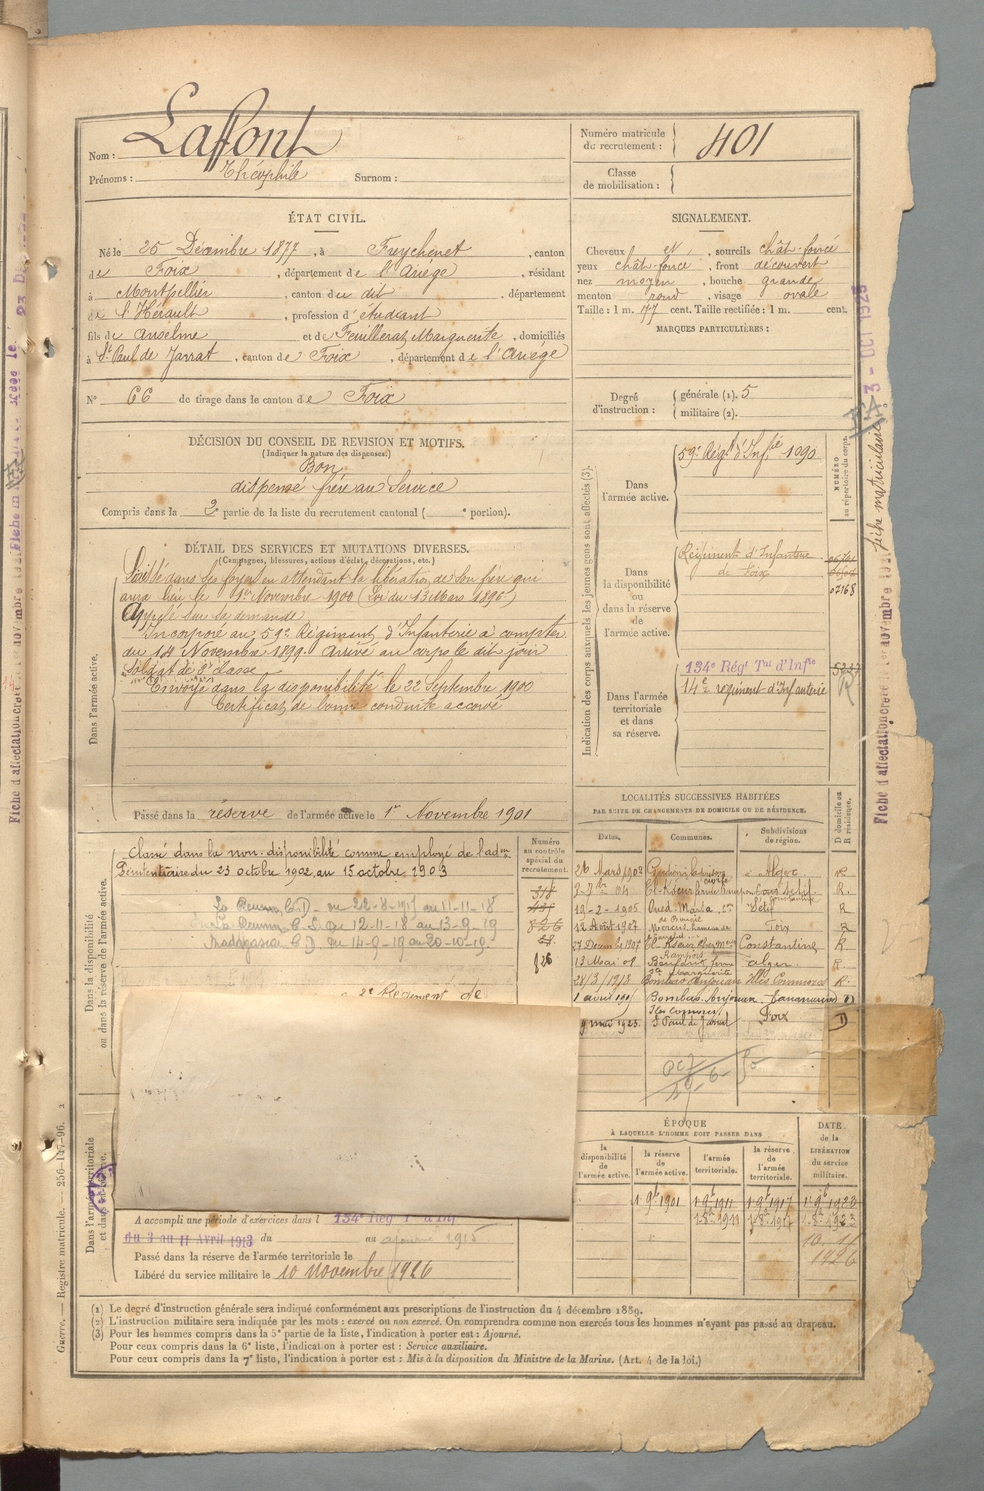 Nom : Laffont
Prénoms : Théophile Surnom :
Numéro matricule du recrutement : 401
Classe de mobilisation :
ÉTAT CIVIL.
Né le 25 Décembre 1877, à Freychenet, canton
de Foix, département de l'Ariège, résidant
à Montpellier, canton du dit, département
de l'Hérault, profession d'étudiant
fils de Anselme et de Feuillerat Marguerite, domiciliés
à St Paul de Jarrat, canton de Foix, département de l'Ariège
N° 66 de tirage dans le canton de Foix
SIGNALEMENT.
Cheveux et, sourcils chât-foncé
yeux chât-foncé, front découvert
nez moyen, bouche grande
menton rond, visage ovale
Taille : 1 m. 77 cent. Taille rectifiée : 1 m. cent.
MARQUES PARTICULIÈRES :
Degré d'instruction : générale (1). 5
militaire (2).
DÉCISION DU CONSEIL DE REVISION ET MOTIFS.
(Indiquer la nature des dispenses.)
Bon
dispensé frère au service
Compris dans la 2 partie de la liste du recrutement cantonal ( e portion).
DÉTAIL DES SERVICES ET MUTATIONS DIVERSES.
(Campagnes, blessures, actions d'éclat, décorations, etc.)
Dans l'armée active.
dans ses foyers en attendant la libération de son frère qui
aura lieu le 1er Novembre 1900 (Loi du 13 Mars 1896)
Appelé sur sa demande
Incorporé au 59e Régiment d'Infanterie à compter
du 14 Novembre 1899. Arrivé au corps le dit jour
soldat de 2e classe
Envoyé dans la disponibilité le 22 Septembre 1900
Certificat de bonne conduite accordé
Passé dans la réserve de l'armée active le 1er Novembre 1901
Indication des corps auxquels les jeunes gens sont affectés (3).
NUMÉRO au répertoire du corps.
Dans l'armée active. 59e Régt d'Infie 1090
Dans la disponibilité ou dans la réserve de l'armée active.
Régiment d'Infanterie
de Foix
07168
Dans l'armée territoriale et dans sa réserve.
134e Régt Tal d'Infrie 5337
14e régiment d'Infanterie R
Dans la disponibilité ou dans la réserve de l'armée active.
Classé dans la non-disponibilité comme employé de l'adon
Pénitentiaire du 23 octobre 1902 au 15 octobre 1903
La Réunion C.D - du 22-8-1915 au 11-11-18
La Réunion C.D. Du 12-11-18 au 13-9-19
Madagascar C D. du 14-9-19 au 20-10-19
2e Régiment de
Numéro au contrôle spécial du recrutement.
318
826
LOCALITÉS SUCCESSIVES HABITÉES
PAR SUITE DE CHANGEMENTS DE DOMICILE OU DE RÉSIDENCE.
Dates. Communes. Subdivisions de région. D domicile ou R résidence.
26 Mars 1902 Alger R
El-Kseur R.
19-2-1905 Oued-Marsa Sétif R
12 Août 1907 Foix R
27 Décembre 1907 El-Kseur Constantine R.
13 Mai 08 Alger R.
28/3/1913 Iles Comores R.
1 avril 191 Bombao Anjouan Tananarive D
Iles Comores
9 mai 1923. St Paul de Jarrat Foix D
ÉPOQUE
À LAQUELLE L'HOMME DOIT PASSER DANS
la disponibilité de l'armée active.
la réserve de l'armée active.
l'armée territoriale.
la réserve de l'armée territoriale.
DATE de la LIBÉRATION du service militaire.
Dans l'armée territoriale
A accompli une période d'exercices dans l 134e Rég T d'Inf
du 3 au 11 Avril 1913 du au ajourné 1915
Passé dans la réserve de l'armée territoriale le
Libéré du service militaire le 10 Novembre 1926
(1) Le degré d'instruction générale sera indiqué conformément aux prescriptions de l'instruction du 4 décembre 1889.
(2) L'instruction militaire sera indiquée par les mots : exercé ou non exercé. On comprendra comme non exercés tous les hommes n'ayant pas passé au drapeau.
(3) Pour les hommes compris dans la 5e partie de la liste, l'indication à porter est : Ajourné.
Pour ceux compris dans la 6e liste, l'indication à porter est : Service auxiliaire.
Pour ceux compris dans la 7e liste, l'indication à porter est : Mis à la disposition du Ministre de la Marine. (Art. 4 de la loi.)
Guerre. — Registre matricule. — 256-147-96.
fiche matriculaire 3 - OCT 1925